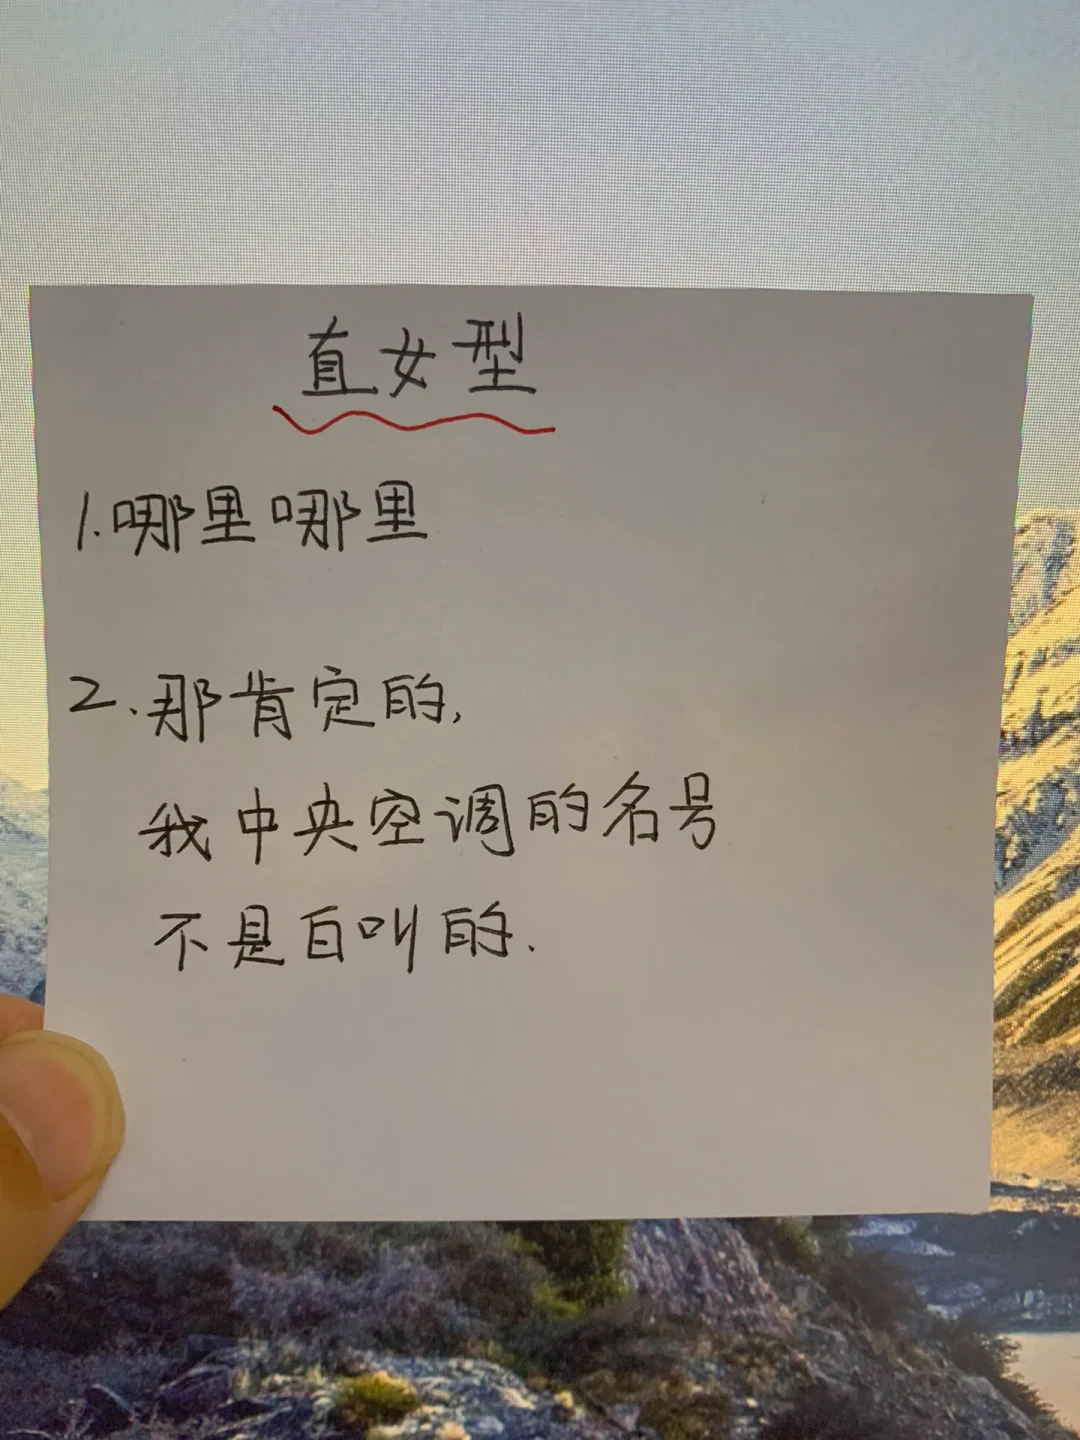 直女型
1.哪里哪里
2.那肯定的,
我中央空调的名号
不是白叫的.